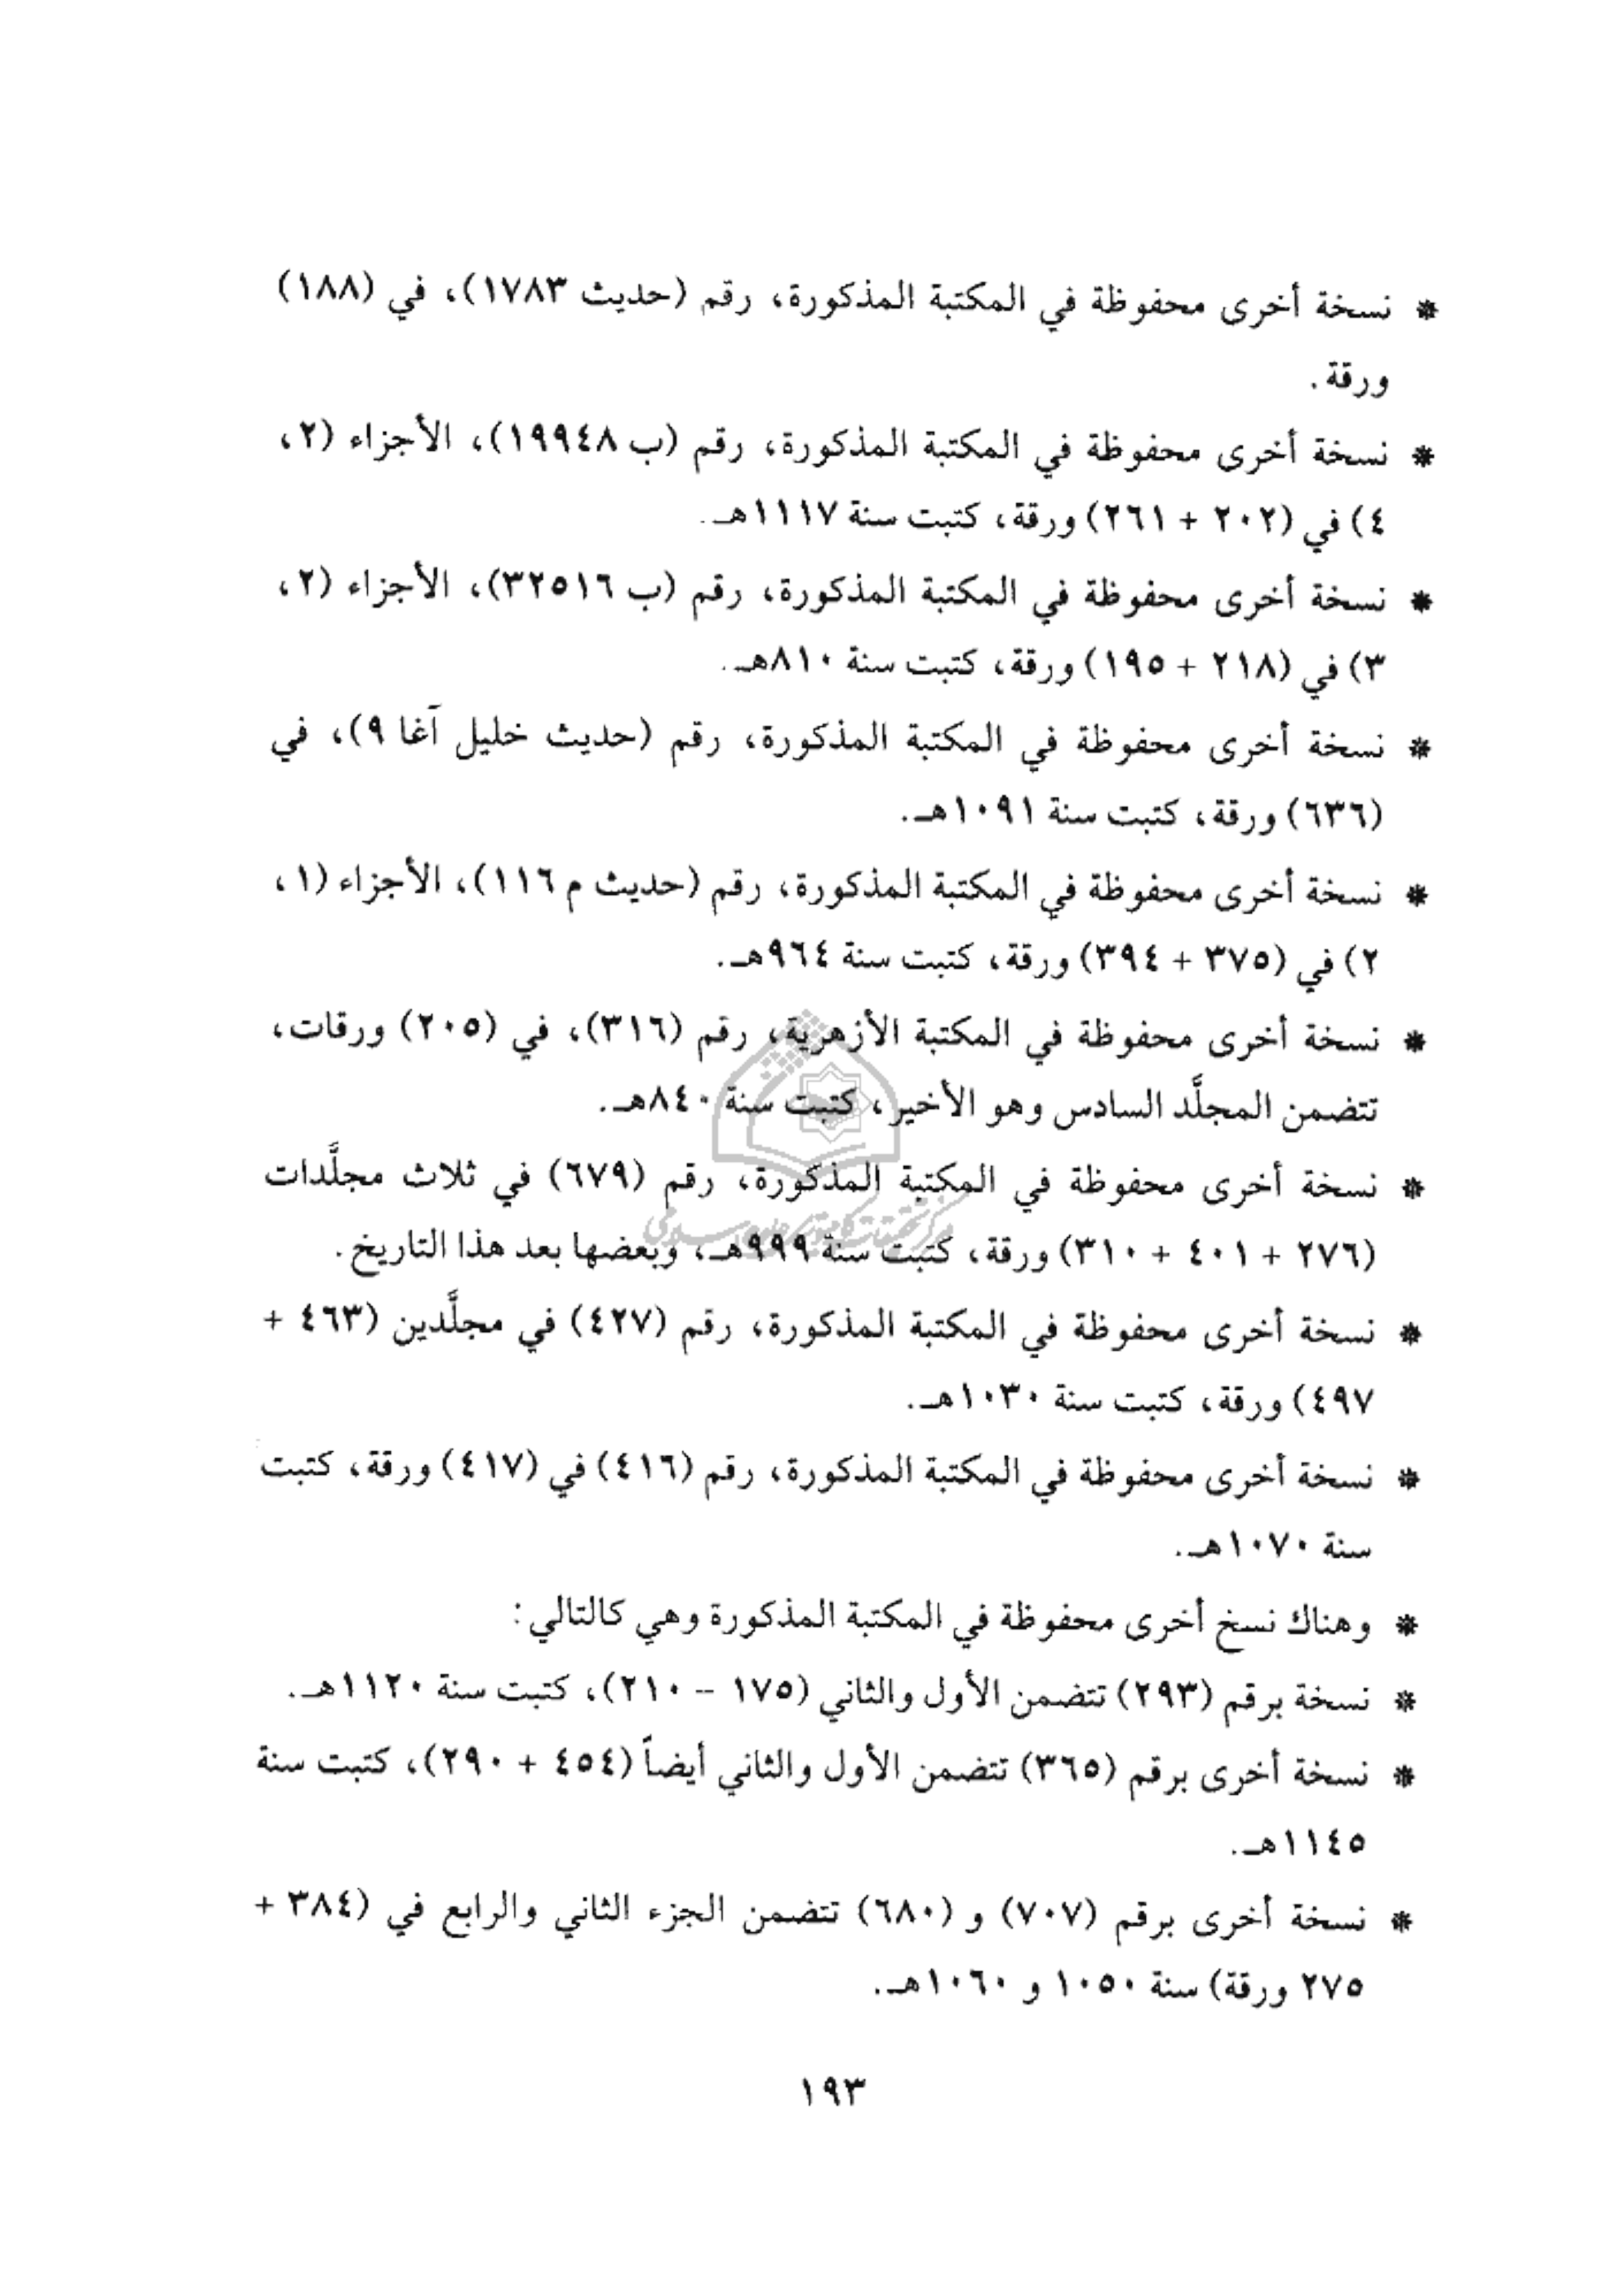 * نسخة أخرى محفوظة في المكتبة المذكورة، رقم (حديث ١٧٨٣)، في (١٨٨)
ورقة.
* نسخة أخرى محفوظة في المكتبة المذكورة، رقم (ب ١٩٩٤٨)، الأجزاء (٢،
٤) في (٢٠٢ + ٢٦١) ورقة، كتبت سنة ١١١٧هـ.
* نسخة أخرى محفوظة في المكتبة المذكورة، رقم (ب ٣٢٥١٦)، الأجزاء (٢،
٣) في (٢١٨ + ١٩٥) ورقة، كتبت سنة ٨١٠هـ.
* نسخة أخرى محفوظة في المكتبة المذكورة، رقم (حديث خليل آغا ٩)، في
(٦٣٦) ورقة، كتبت سنة ١٠٩١هـ.
* نسخة أخرى محفوظة في المكتبة المذكورة، رقم (حديث م ١١٦)، الأجزاء (١،
٢) في (٣٧٥ + ٣٩٤) ورقة، كتبت سنة ٩٦٤هـ.
* نسخة أخرى محفوظة في المكتبة الأزهرية، رقم (٣١٦)، في (٢٠٥) ورقات،
تتضمن المجلَّد السادس وهو الأخير، كتبت سنة ٨٤٠هـ.
* نسخة أخرى محفوظة في المكتبة المذكورة، رقم (٦٧٩) في ثلاث مجلَّدات
(٢٧٦ + ٤٠١ + ٣١٠) ورقة، كتبت سنة ٩٩٩هـ، وبعضها بعد هذا التاريخ.
* نسخة أخرى محفوظة في المكتبة المذكورة، رقم (٤٢٧) في مجلَّدين (٤٦٣ +
٤٩٧) ورقة، كتبت سنة ١٠٣٠هـ.
* نسخة أخرى محفوظة في المكتبة المذكورة، رقم (٤١٦) في (٤١٧) ورقة، كتبت
سنة ١٠٧٠هـ.
* وهناك نسخ أخرى محفوظة في المكتبة المذكورة وهي كالتالي:
* نسخة برقم (٢٩٣) تتضمن الأول والثاني (١٧٥ – ٢١٠)، كتبت سنة ١١٢٠هـ.
* نسخة أخرى برقم (٣٦٥) تتضمن الأول والثاني أيضاً (٤٥٤ + ٢٩٠)، كتبت سنة
١١٤٥هـ.
* نسخة أخرى برقم (٧٠٧) و (٦٨٠) تتضمن الجزء الثاني والرابع في (٣٨٤ +
٢٧٥ ورقة) سنة ١٠٥٠ و ١٠٦٠هـ.
١٩٣